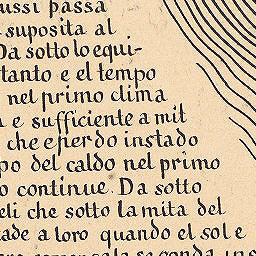 ussi passa
suposita al
Da sotto lo equi-
tanto e el tempo
nel primo clima
e sufficiente a mit
che e perdo instado
po del caldo nel primo
o continue. Da sotto
eli che sotto la mita del
ade a loro quando el sol e